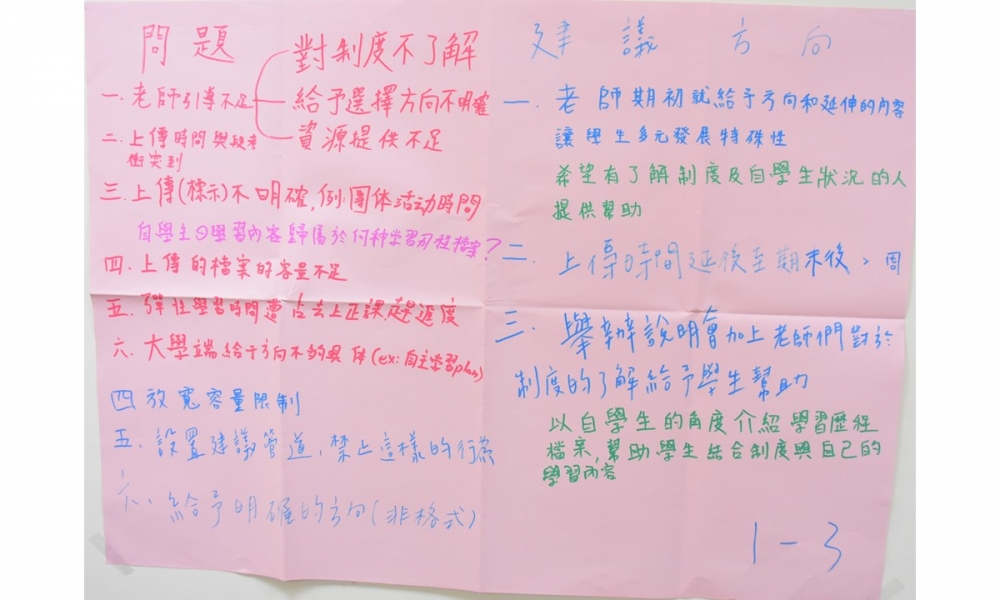 問題
對制度不了解
一. 老師引導不足
給予選擇方向不明確
資源提供不足
二. 上傳時間與段考
衝突到
三. 上傳(標示)不明確, 例:團体活動時間
自學生の學習內容歸屬於何种学習历程檔案?
四. 上傳的檔案的容量不足
五. 彈性學習時間遭占去上正課,趕進度
六. 大學端給予方向不夠具体(ex:自主学習plan)
四 放寬容量限制
五. 設置建議管道, 禁止這樣的行為
六、給予明確的方向(非格式)
建議方向
一. 老師期初就給予方向和延伸的內容
讓學生多元發展特殊性
希望有了解制度及自學生狀況的人
提供幫助
二. 上傳時間延後至期末後、周
三. 舉辦說明會加上老師們對於
制度的了解給予學生幫助
以自學生的角度介紹學習歷程
檔案, 幫助學生結合制度與自己的
學習內容
1-3